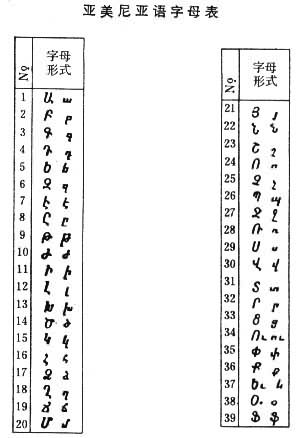 亚美尼亚语字母表
№ 字母形式
1 Ա ա
2 Բ բ
3 Գ գ
4 Դ դ
5 Ե ե
6 Զ զ
7 Է է
8 Ը ը
9 Թ թ
10 Ժ ժ
11 Ի ի
12 Լ լ
13 Խ խ
14 Ծ ծ
15 Կ կ
16 Հ հ
17 Ձ ձ
18 Ղ ղ
19 Ճ ճ
20 Մ մ
№ 字母形式
21 Յ յ
22 Ն ն
23 Շ շ
24 Ո ո
25 Չ չ
26 Պ պ
27 Ջ ջ
28 Ռ ռ
29 Ս ս
30 Վ վ
31 Տ տ
32 Ր ր
33 Ց ց
34 Ու ու
35 Փ փ
36 Ք ք
37 Եւ և
38 Օ օ
39 Ֆ ֆ